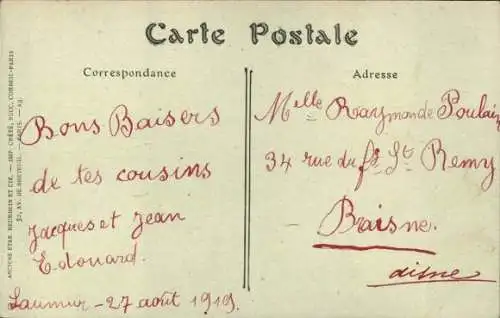 Carte Postale
Correspondance
Adresse
Bons Baisers
de tes cousins
Jacques et Jean
Edouard.
Saumur - 27 août 1919.
Melle Raymonde Poulain
34 rue du fg St Remy
Braisne.
aisne
ANCIENS ETAB. NEURDEIN ET CIE. — IMP. CRÉTÉ, SUCC. CORBEIL-PARIS
52, AV. DE BRETEUIL. — PARIS. —